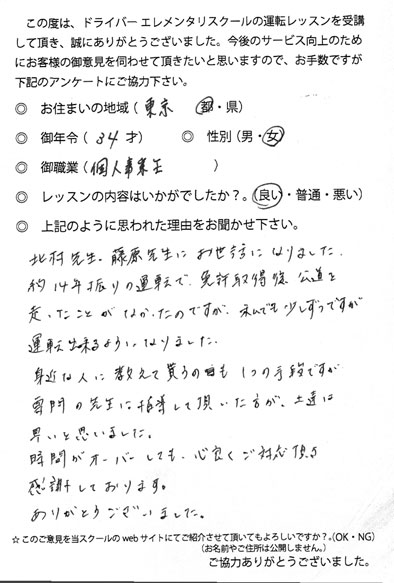 この度は、ドライバー エレメンタリスクールの運転レッスンを受講
して頂き、誠にありがとうございました。今後のサービス向上のため
にお客様の御意見を伺わせて頂きたいと思いますので、お手数ですが
下記のアンケートにご協力下さい。
◎ お住まいの地域（東京 都・県）
◎ 御年令（ 34 才） ◎ 性別（男・女）
◎ 御職業（個人事業主 ）
◎ レッスンの内容はいかがでしたか？。（良い・普通・悪い）
◎ 上記のように思われた理由をお聞かせ下さい。
北村先生、藤原先生にお世話になりました。
約14年振りの運転で、免許取得後 公道を
走ったことがなかったのですが、それでも少しずつですが
運転出来るようになりました。
身近な人に教えて貰うのも 1つの手段ですが
専門の先生に指導して頂いた方が、上達は
早いと思いました。
時間がオーバーしても、心良くご対応頂き
感謝しております。
ありがとうございました。
☆このご意見を当スクールの web サイトにてご紹介させて頂いてもよろしいですか？。（OK・NG）
（お名前やご住所は公開しません。）
ご協力ありがとうございました。